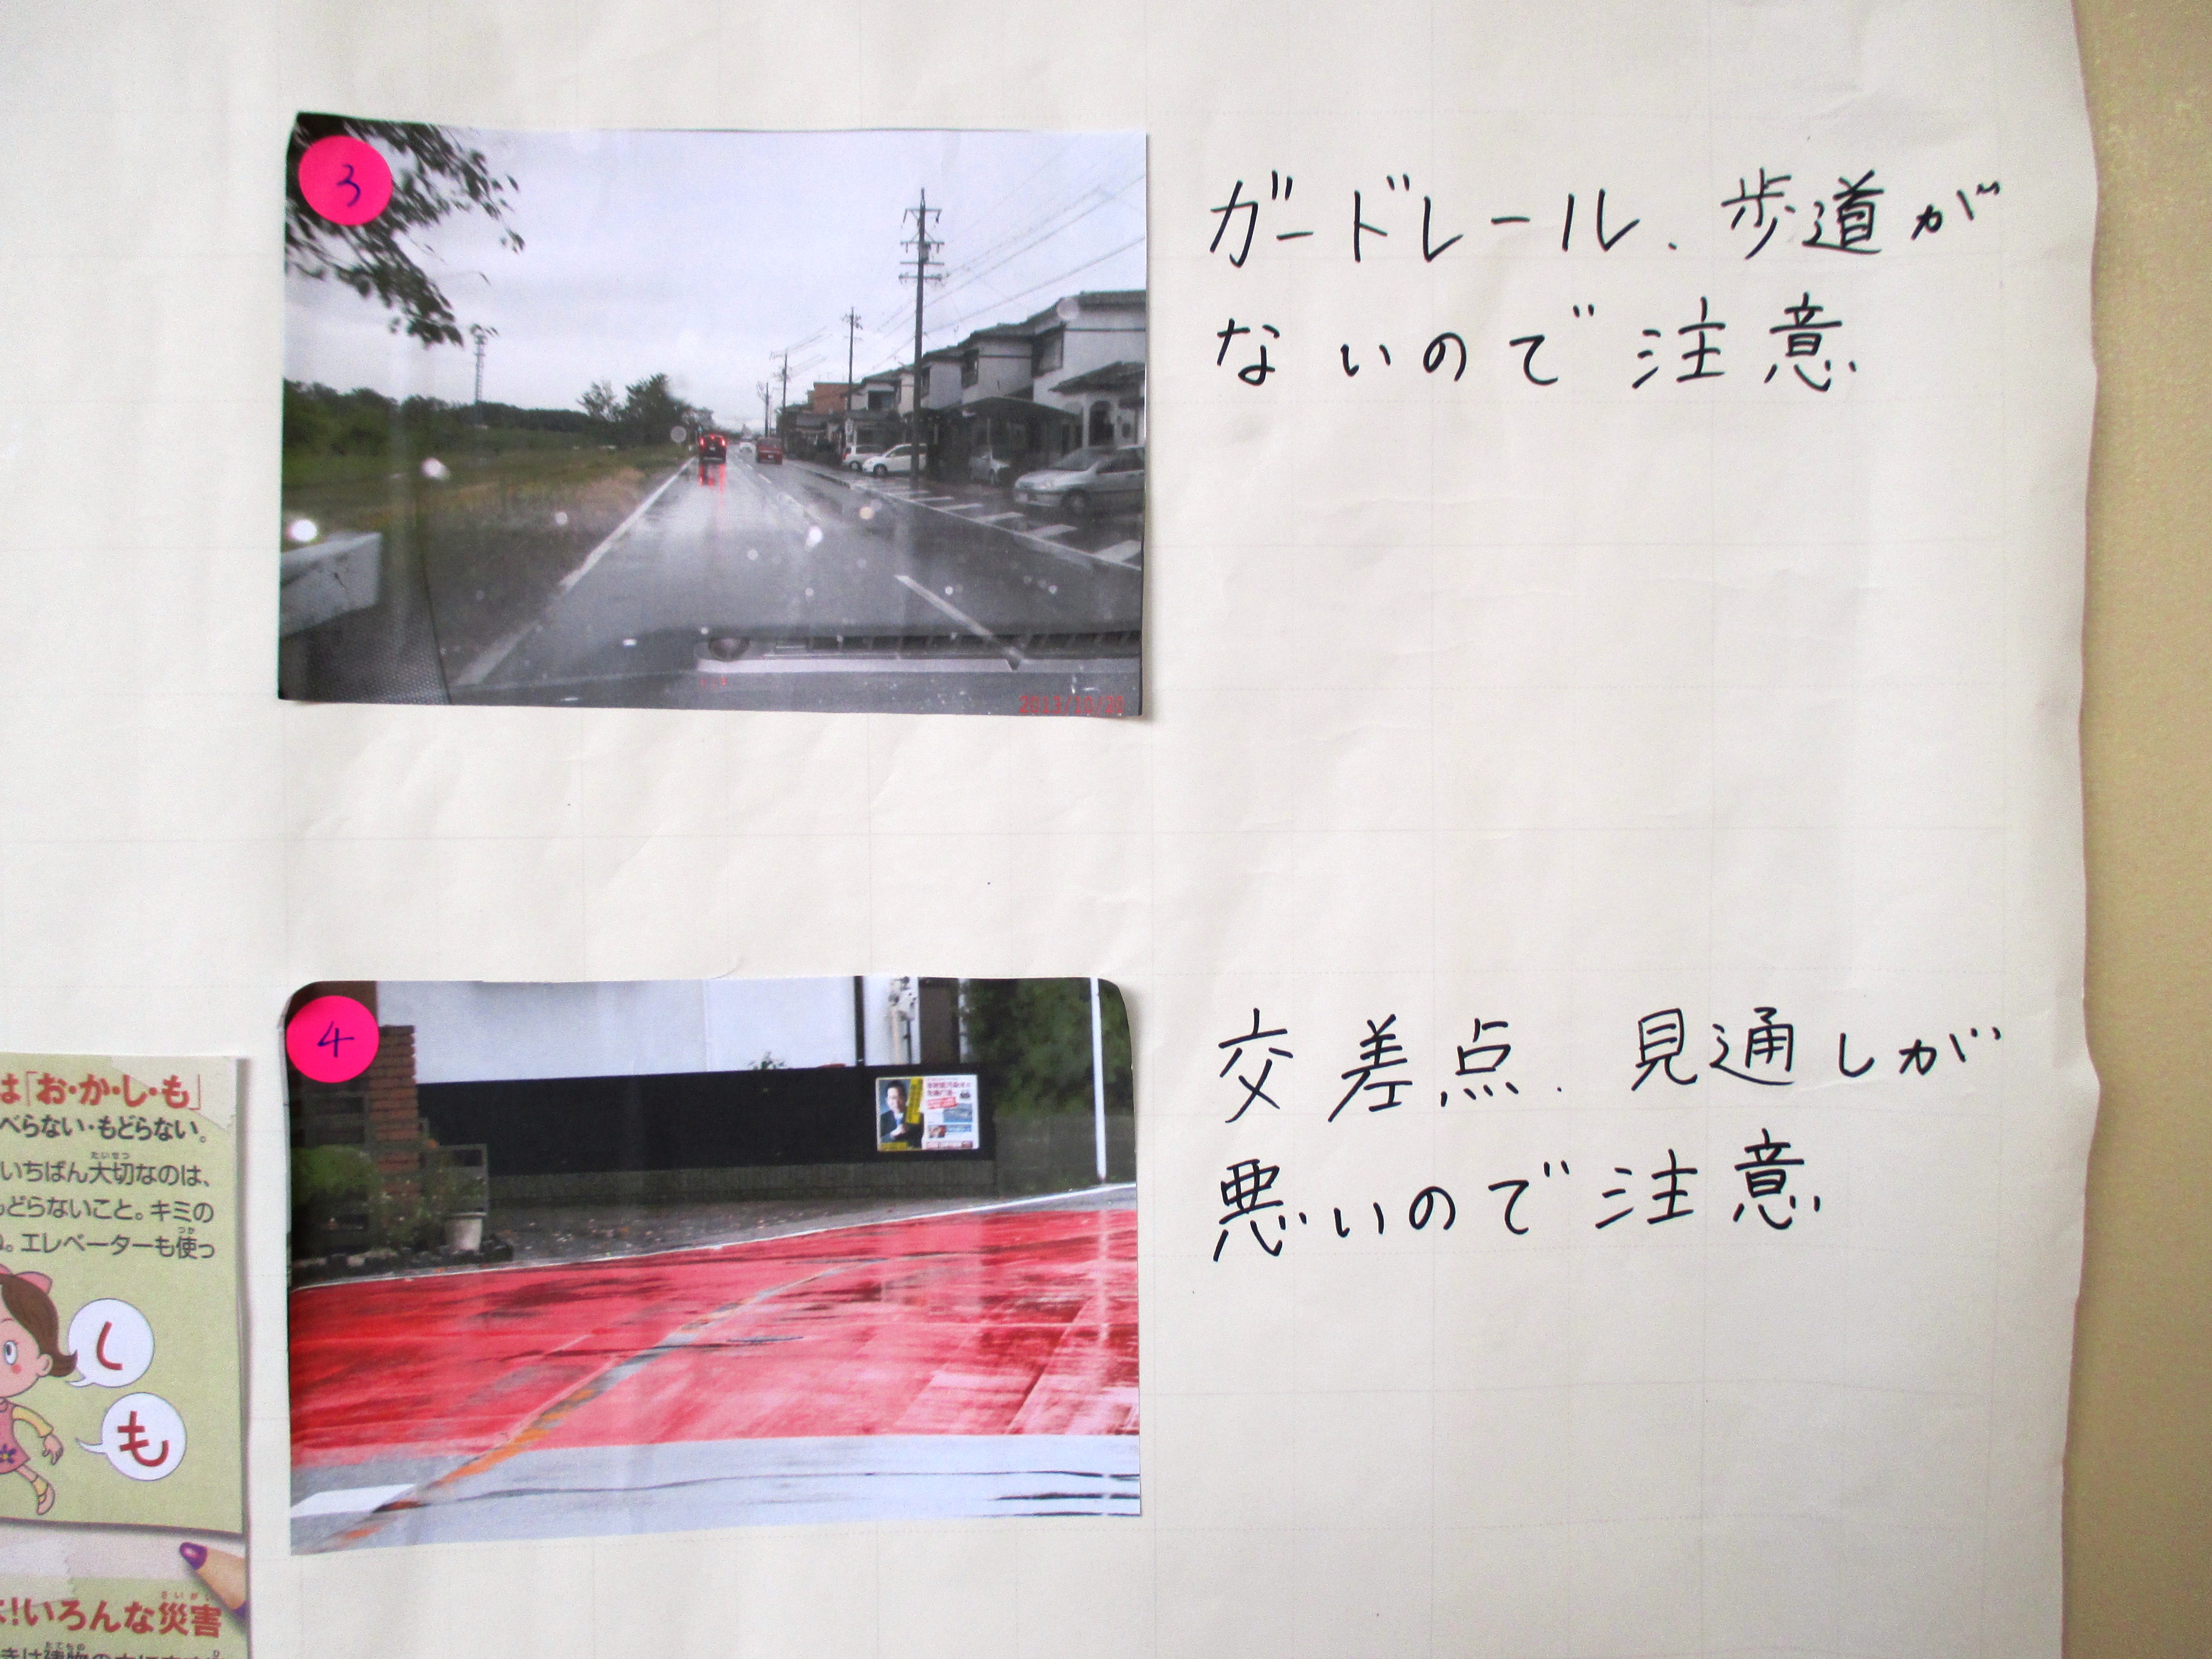 3
ガードレール、歩道が
ないので注意
2013/10/20
4
交差点、見通しが
悪いので注意
は「お・か・し・も」
べらない・もどらない。
いちばん大切なのは、
もどらないこと。キミの
エレベーターも使っ
し
も
!いろんな災害